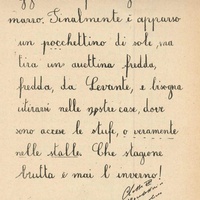 marzo. Finalmente è apparso
un pochettino di sole, ma
tira un'auettina fredda,
fredda, da Levante, e bisogna
ritirarsi nelle nostre case, dove
sono accese le stufe, o veramente
nelle stalle. Che stagione
brutta è mai l'inverno!